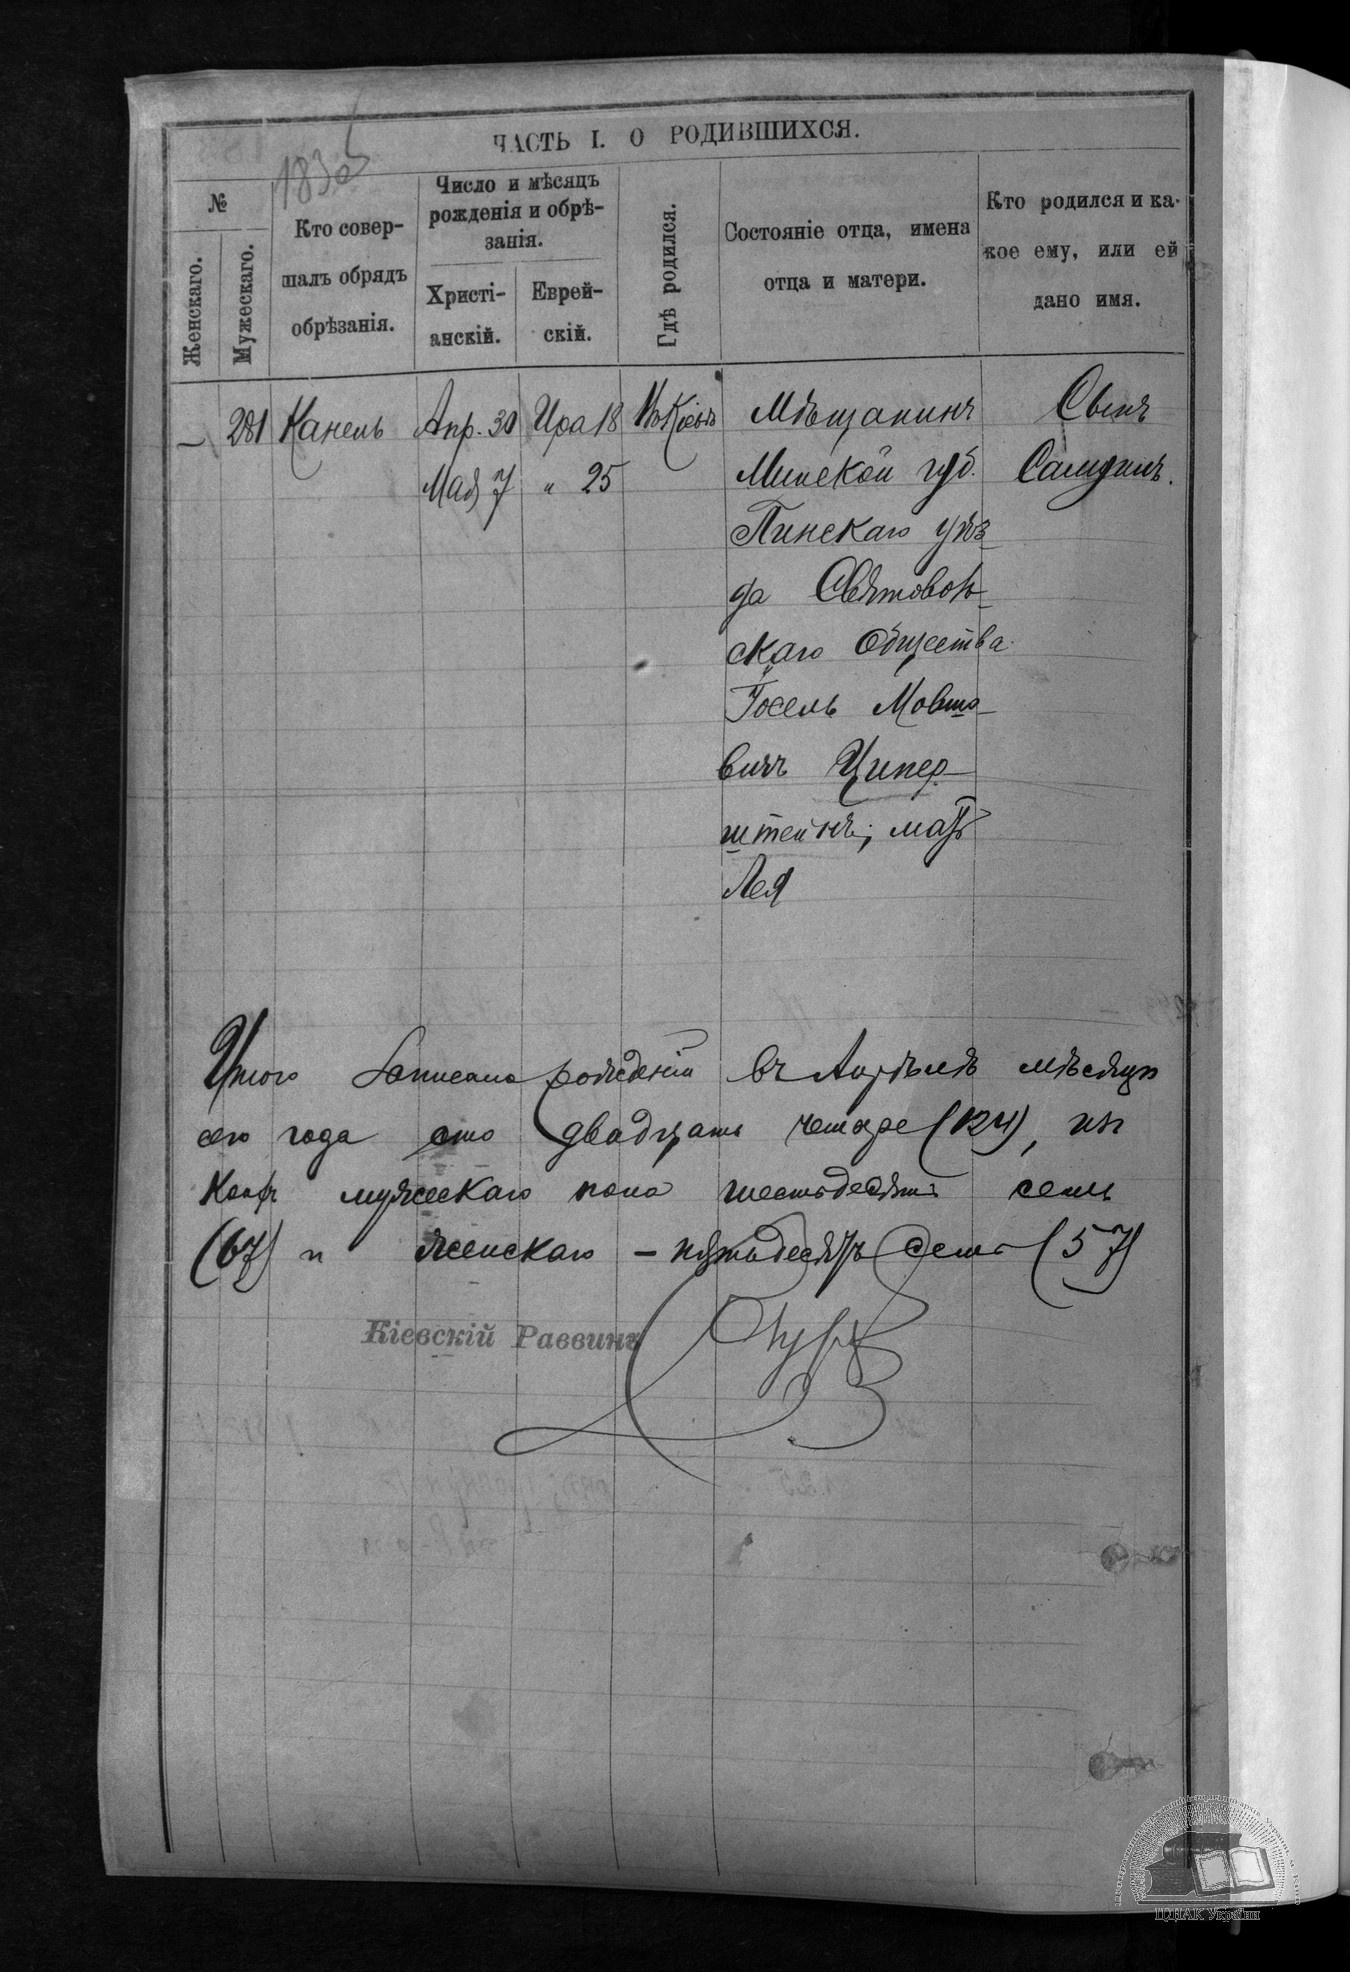 ЧАСТЬ I. О РОДИВШИХСЯ.
№
Женскаго.
Мужескаго.
Кто совер-
шалъ обрядъ
обрѣзанія.
Число и мѣсяцъ
рожденія и обрѣ-
занія.
Христі-
анскій.
Еврей-
скій.
Гдѣ родился.
Состояніе отца, имена
отца и матери.
Кто родился и ка-
кое ему, или ей
дано имя.
— 281 Канель Апр. 30 Ира 18 Въ Кіевѣ Мѣщанинъ Сынъ
Мая 7 " 25 Минской губ. Самуилъ.
Пинскаго уѣз-
да Святоволь-
скаго Общества
Іосель Мовшо-
вичъ Ципер-
штейнъ; мать
Лея
Итого записано рожденій въ Апрѣлѣ мѣсяцѣ
сего года сто двадцать четыре (124), изъ
коихъ мужескаго пола шестьдесятъ семь
(67) и женскаго – пятьдесятъ семь (57)
Кіевскій Раввинъ
ЦДІАК України